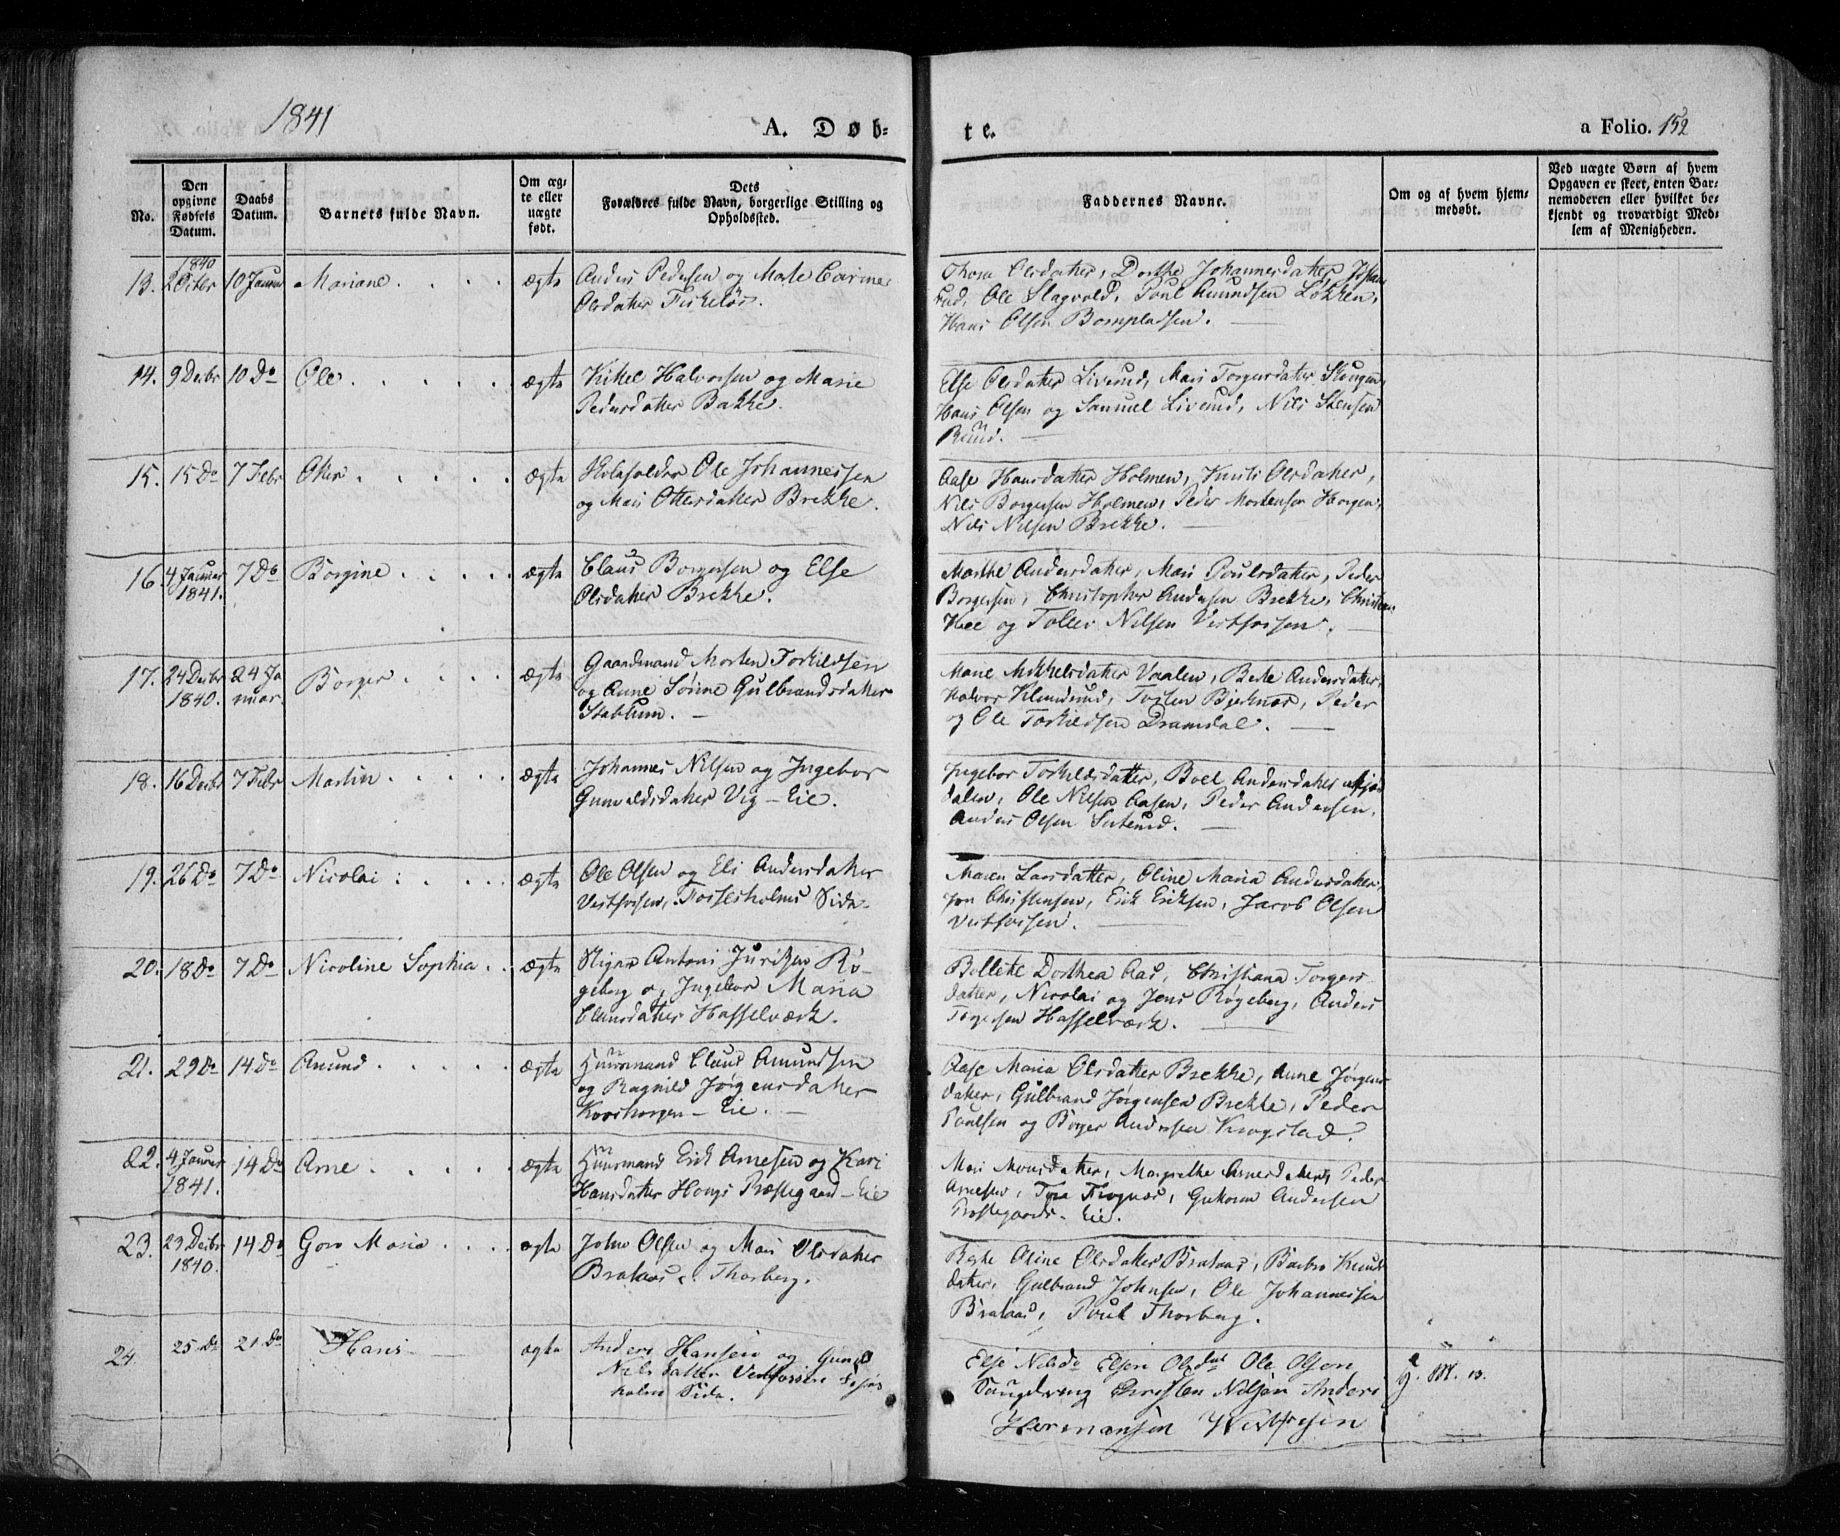 1841
A. Døb-
te.
a Folio. 152
No.
Den opgivne Fødsels Datum.
Daabs Datum.
Barnets fulde Navn.
Om ægte eller uægte født.
Dets Forældres fulde Navn, borgerlige Stilling og Opholdssted.
Faddernes Navne.
Om og af hvem hjemmedøbt.
Ved uægte Børn af hvem Opgaven er skeet, enten Barnemoderen eller hvilket bekjendt og troværdigt Medlem af Menigheden.
1840
13. 10 Mariane ægte Anders Pedersen og
Olsdatter Fiskeløs.
Olsdatter, Dorthe Johannesdatter
Ole Slagvold, Poul Amundsen Løkken,
Hans Olsen Bompladsen.
14. 9 Decbr 10 Do Ole ægte Kittel Halvorsen og Marie
Pedersdatter Bakke.
Else Olsdatter Liverud, Mari Torgersdatter
Hans Olsen og Samuel Liverud, Nils Stensen
Ruud.
15. 15 Do 7 Febr ægte Ole Johannessen
og Mari Ottersdatter Brekke.
Aase Hansdatter Holmen, Kristi Olsdatter,
Nils Borgersen Holmen, Peder Mortensen Horgen,
Nils Nilsen Brekke.
16. 4 Januar 7 Do Borgine ægte Claus Borgersen og Else
1841. Olsdatter Brekke.
Marthe Andersdatter, Mari Poulsdatter, Peder
Borgersen, Christopher Andersen Brekke,
og Tollev Nilsen Vestfossen.
17. 24 Decbr 24 Ja Borger ægte Gaardmand Morten Torkildsen
1840. nuar. og Anne Sørine Gulbrandsdatter
Stablum.
Marie Mikkelsdatter Vaalen, Andersdatter,
Halvor, Peder
og Ole Torkildsen Dramdal.
18. 16 Decbr 7 Febr Martin ægte Johannes Nilsen og Ingebor
Gunvaldsdatter Vig - Eie.
Ingebor Torkildsdatter, Boel Andersdatter
dalen, Ole Nilsen Aasen, Peder Andersen,
Anders Olsen
19. 26 Do 7 Do Nicolai ægte Ole Olsen og Eli Andersdatter
Vestfossen, Fossesholms Side.
Maren Larsdatter, Oline Maria Andersdatter,
Jon Christensen, Erik Eriksen, Jacob Olsen
Vestfossen.
20. 18 Do 7 Do Nicoline Sophia ægte Stiger Antoni Rø-
geberg og Ingebor Maria
Clausdatter Hasselværk.
Bollette Dorthea Aas, Christiana Torgers-
datter, Nicolai og Jens Røgeberg, Anders
Torgersen Hasselværk.
21. 29 Do 14 Do Amund ægte Huusmand Claus Amundsen
og Ragnild Jørgensdatter
Korshorgen - Eie.
Aase Maria Olsdatter Brekke, Anne Jørgens-
datter, Gulbrand Jørgensen Brekke, Peder
Poulsen og Borger Andersen Krogstad.
22. 4 Januar 14 Do Arne ægte Huusmand Erik Arnesen og Kari
1841. Hansdatter Hougs Præstegaard - Eie
Mari Monsdatter, Margrethe Arnesdatter, Peder
Arnesen, Tore Guttorm Andersen
Præstegaards - Eie.
23. 23 Decbr 14 Do Maria ægte John Olsen og Mari Olsdatter
1840. Brataas Thorberg.
Oline Olsdatter Brataas, Barbro Knuds-
datter, Gulbrand Johnsen, Ole Johannessen
Brataas, Poul Thorberg.
24. 25 Do 21 Do Hans ægte Anders Hansen og
Nilsdatter Vestfossen
holm Side.
Else Olsdat Ole Olsen
Christen Nilsen Anders
Hermansen Vestfossen